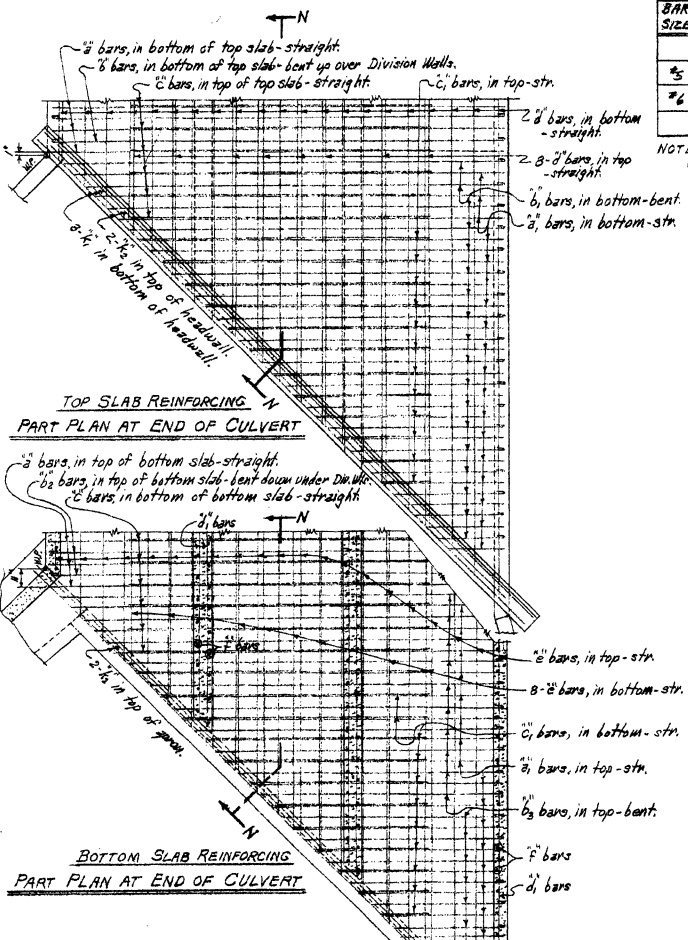 N
"a" bars, in bottom of top slab-straight.
"b" bars, in bottom of top slab-bent up over Division Walls.
"c" bars, in top of top slab-straight.
"c₁" bars, in top-str.
"d" bars, in bottom
-straight.
8-"d" bars, in top
-straight.
"b₁" bars, in bottom-bent.
"a₁" bars, in bottom-str.
BAR
SIZE
#5
#6
NOTE
W.P.
2-"k₂" in top of headwall.
3-"k₁" in bottom of headwall.
N
TOP SLAB REINFORCING
PART PLAN AT END OF CULVERT
"a" bars, in top of bottom slab-straight.
"b₂" bars, in top of bottom slab-bent down under Div. Wls.
"c" bars, in bottom of bottom slab-straight.
"d₁" bars
N
W.P.
"f" bars
2-"k₃" in top of apron.
"e" bars, in top-str.
8-"e" bars, in bottom-str.
"c₁" bars, in bottom-str.
"a₁" bars, in top-str.
"b₃" bars, in top-bent.
"f" bars
"d₁" bars
N
BOTTOM SLAB REINFORCING
PART PLAN AT END OF CULVERT